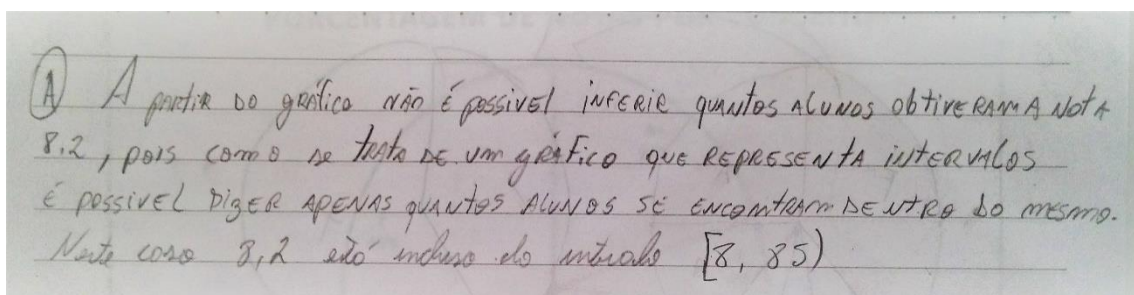 A A partir do gráfico não é possivel inferir quantos alunos obtiveram a nota
8.2, pois como se trata de um gráfico que representa intervalos
é possivel dizer apenas quantos alunos se encontram dentro do mesmo.
Neste caso 8,2 está incluso do intervalo [8, 85)